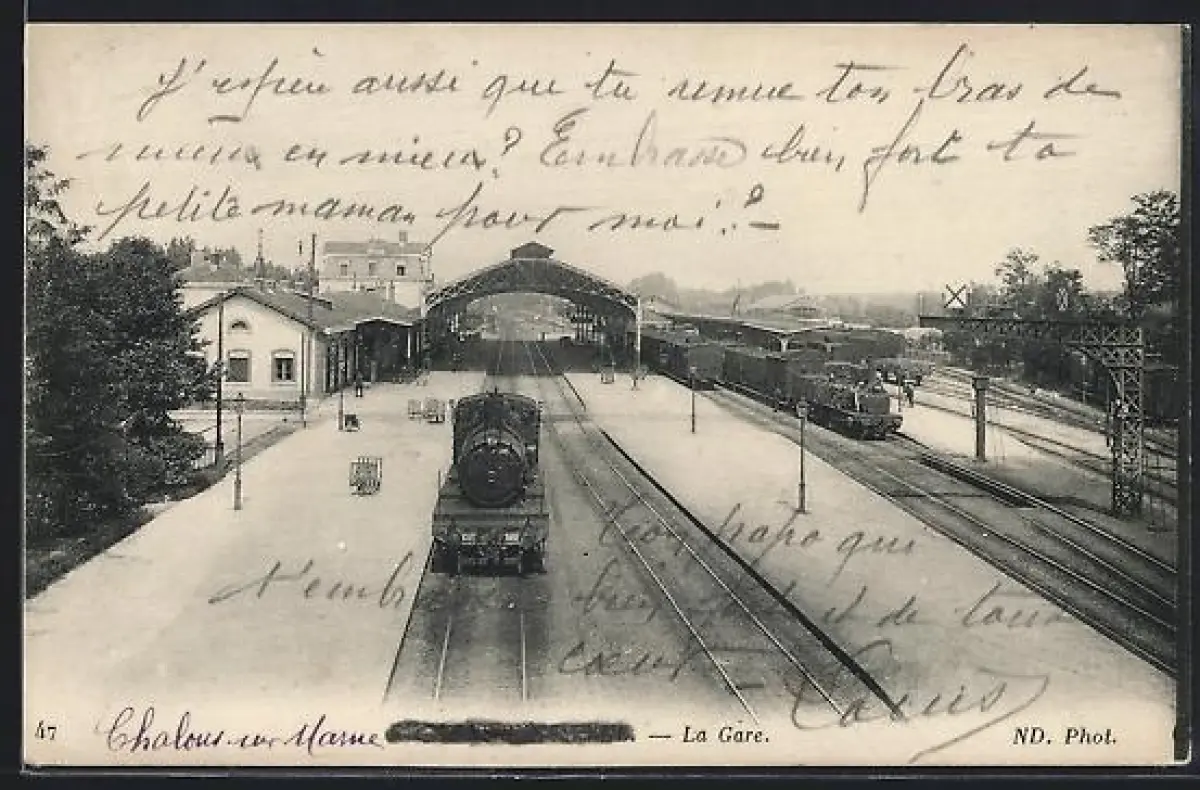 J'espère aussi que tu remue ton bras de
mieux en mieux? Embrasse bien fort ta
petite maman pour moi.
Ton papa qui
t'embrasse bien fort et de tout
cœur
Louis
47 Chalons-sur Marne — La Gare. ND. Phot.